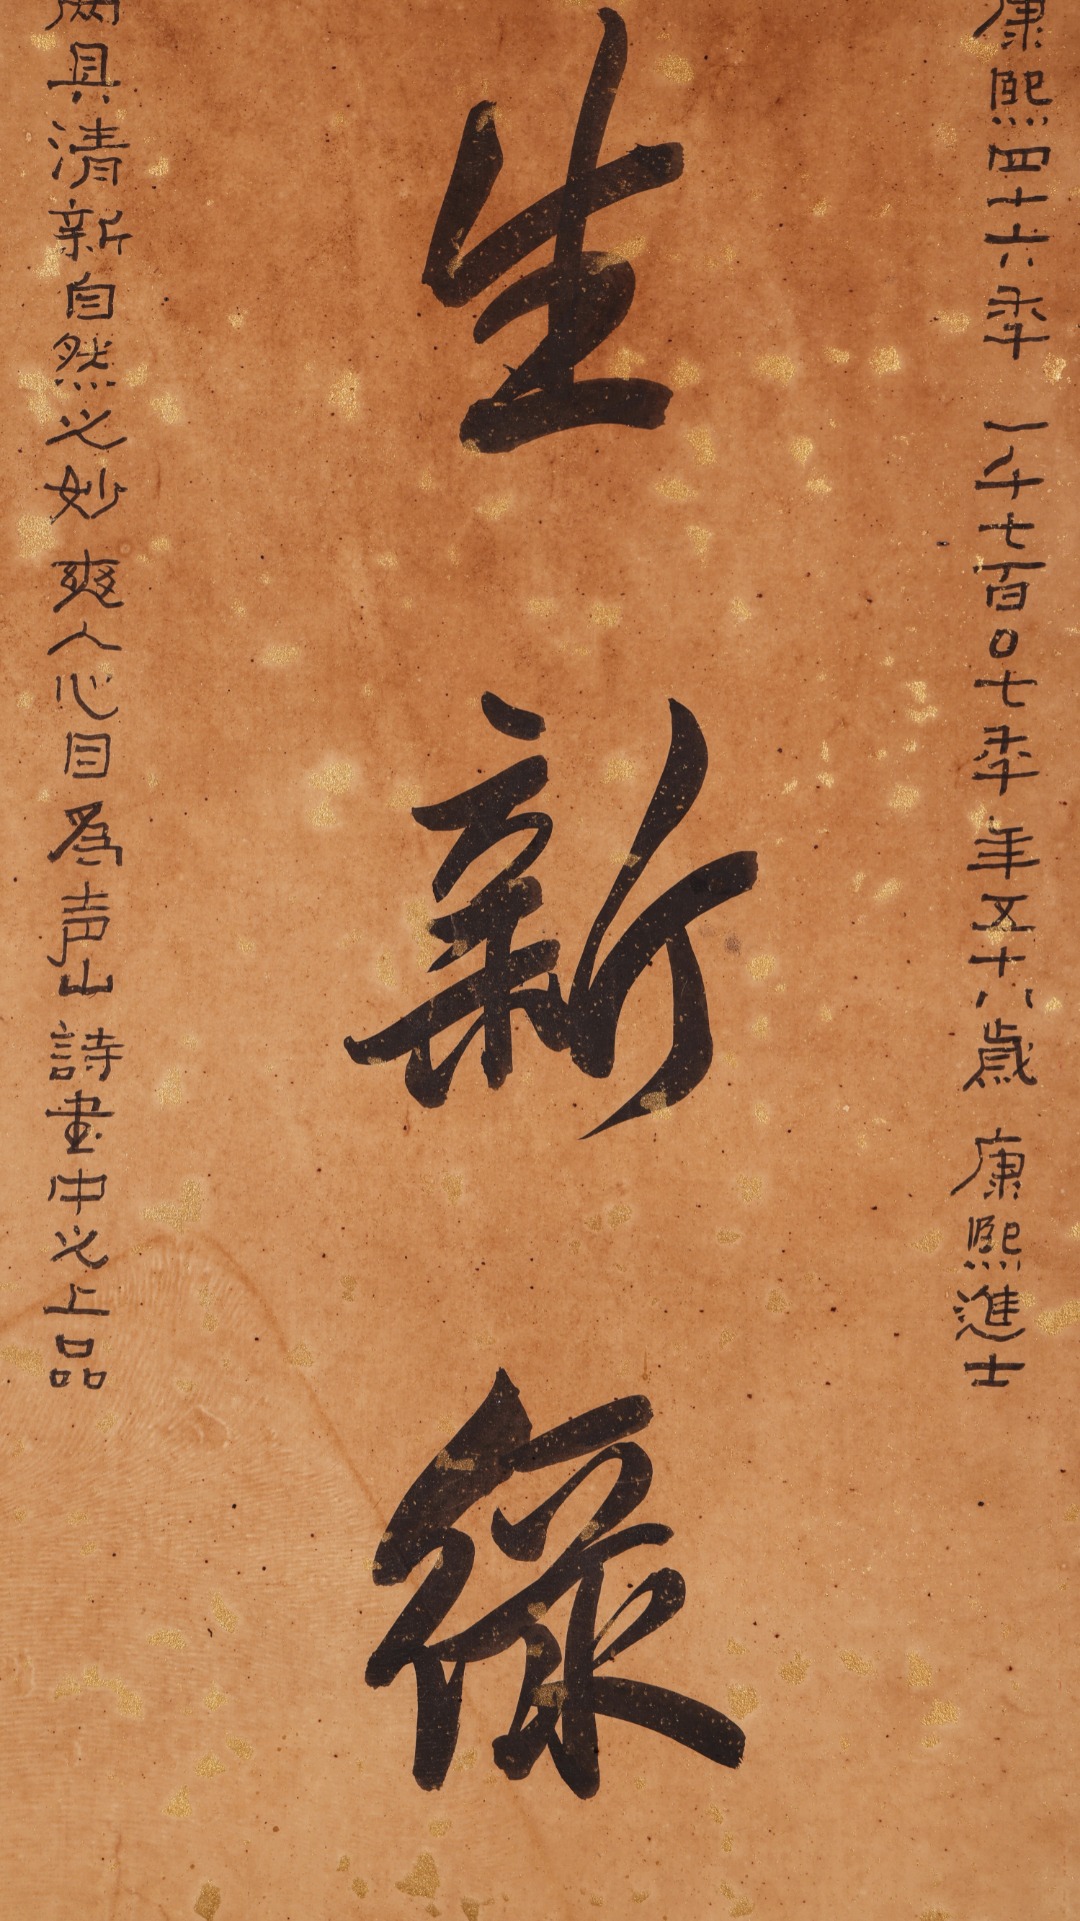 康熙四十六年 一千七百0七年 年五十八歲 康熙進士
生新綠
具清新自然之妙 爽人心目為声山詩畫中之上品